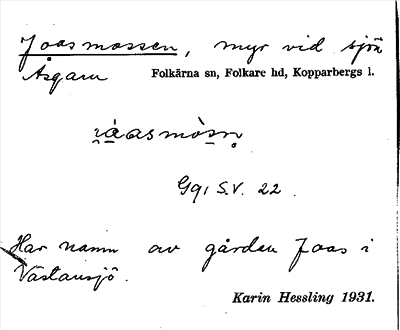 Joasmossen, myr vid sjön
Åsgarn Folkärna sn, Folkare hd, Kopparbergs l.
Gq, S.V. 22.
Har namn av gården Joas i
Västansjö.
Karin Hessling 1931.